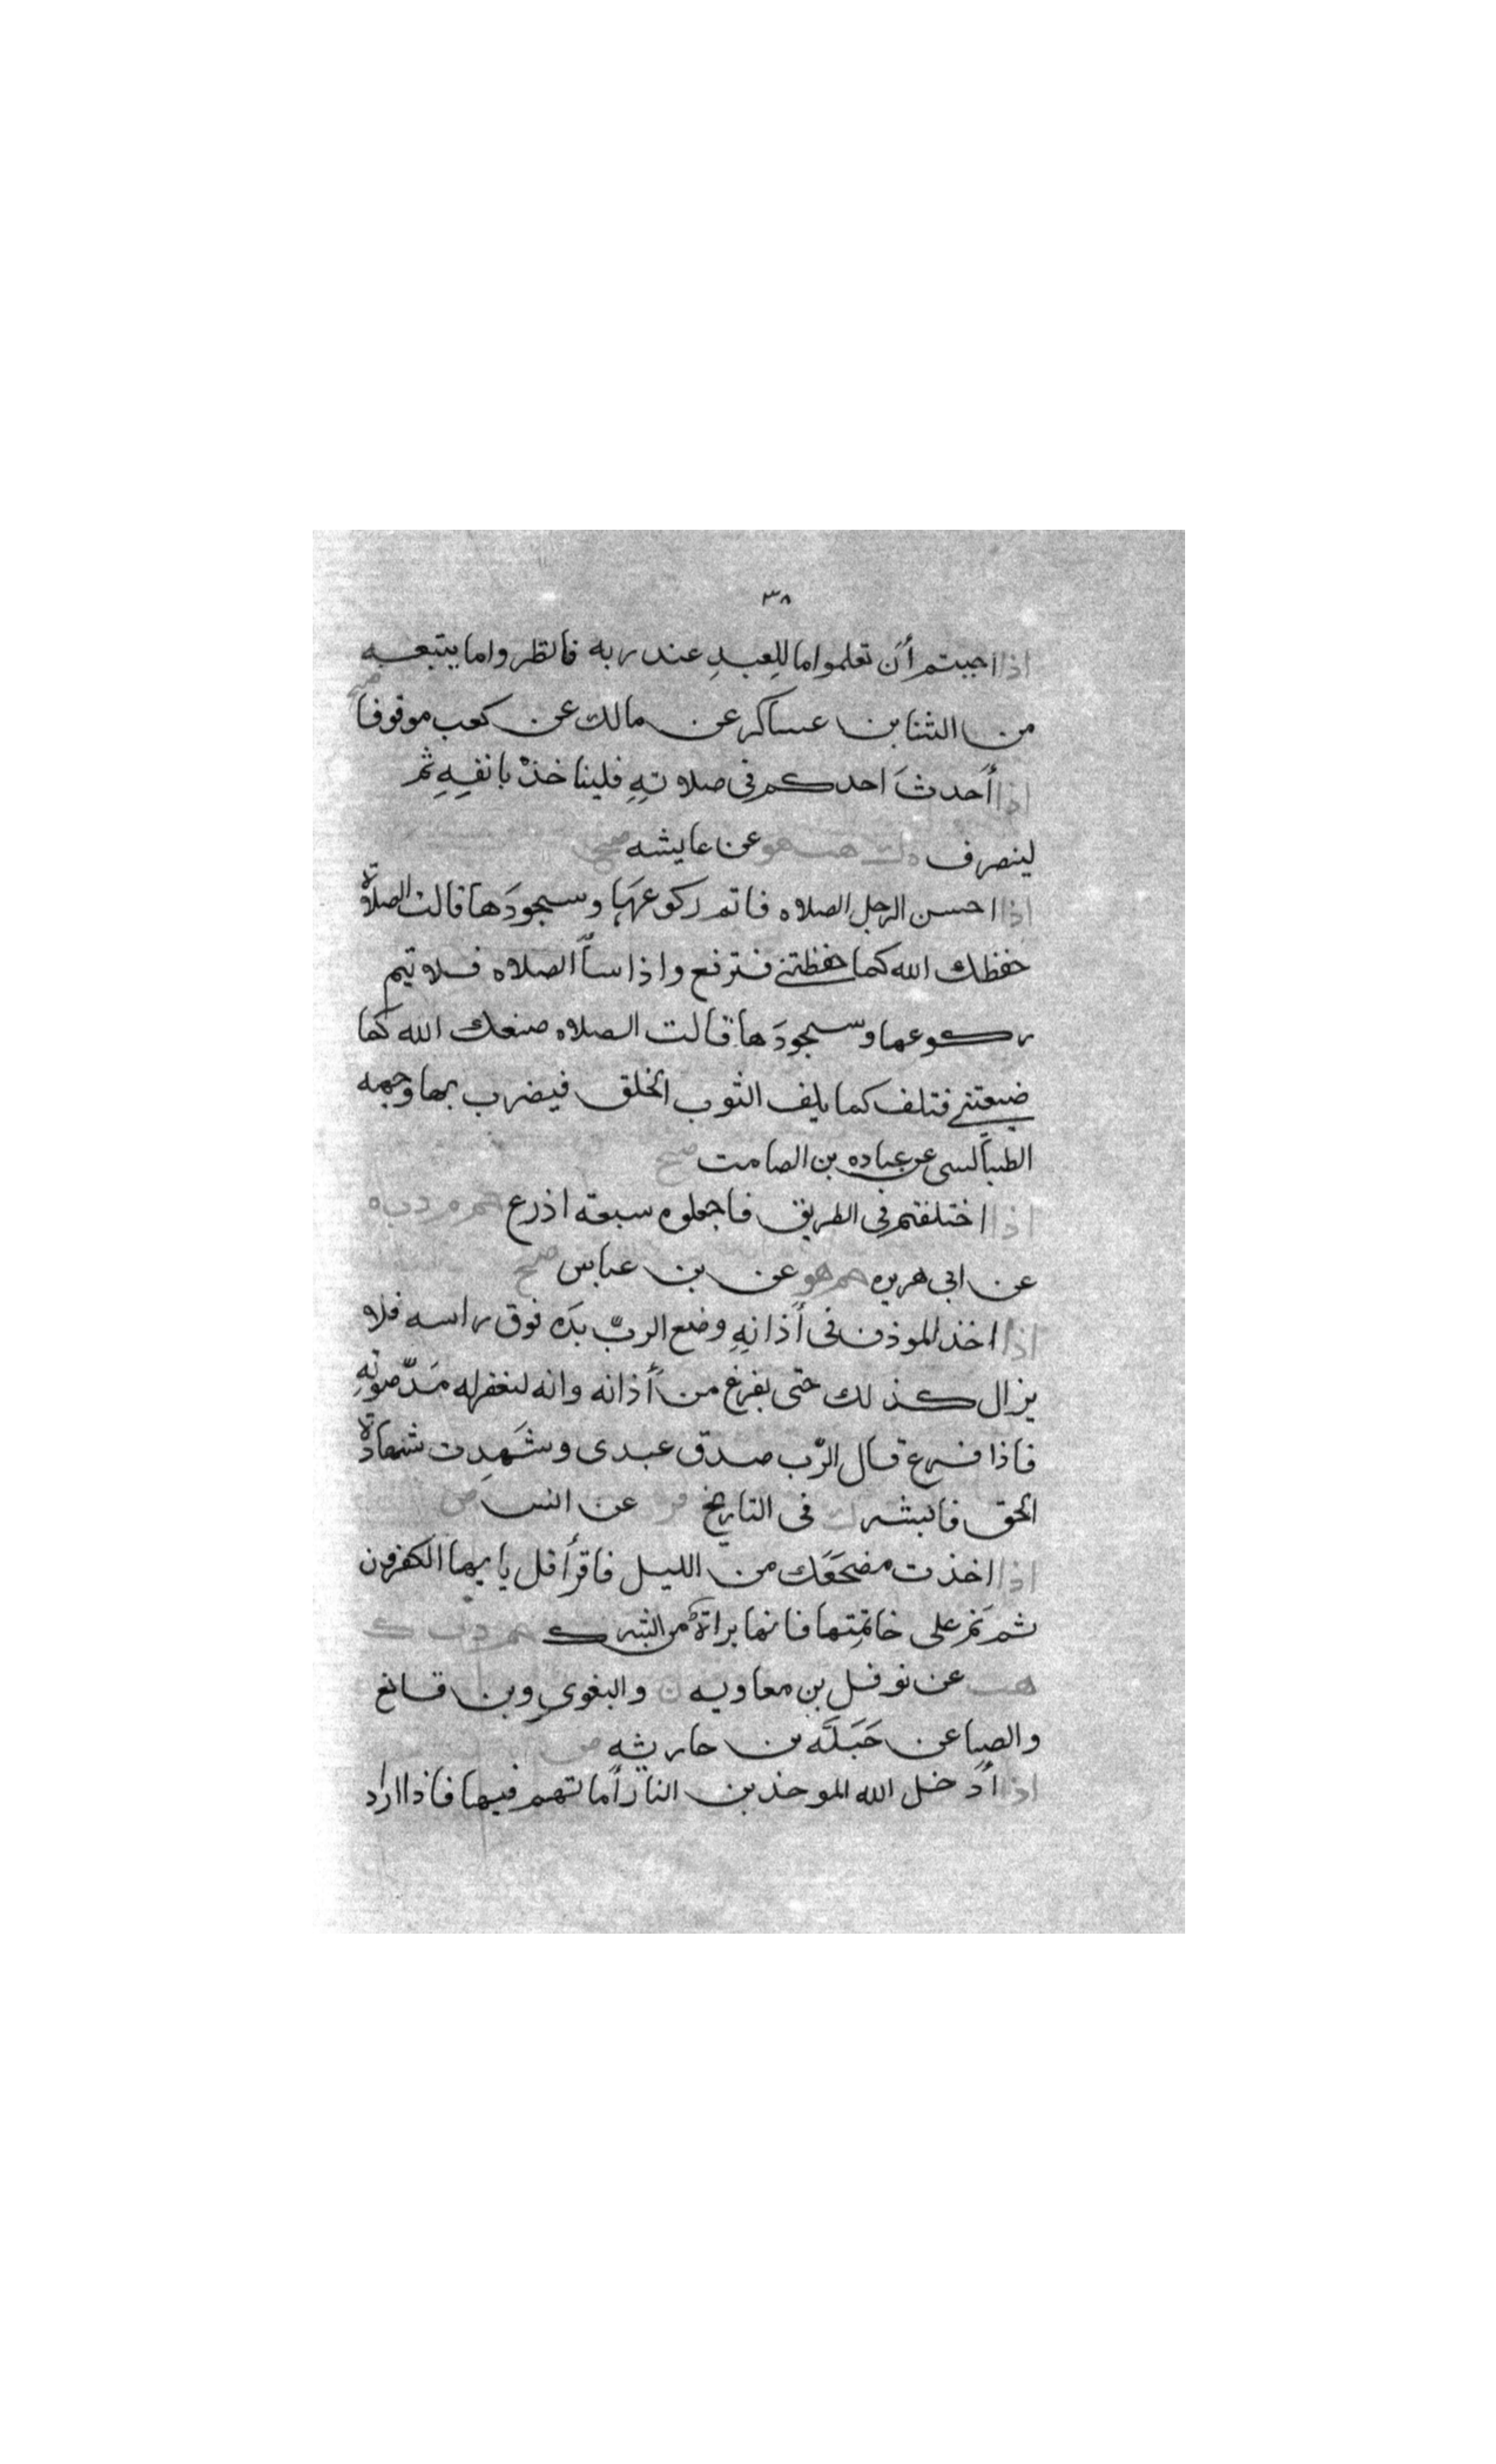 ٣٨
اذا احببتم أن تعلموا ما للعبدِ عند ربه فانظروا ما يتبعه
من الثنا بن عساكر عن مالك عن كعب موقوفا صح
اذا أحدثَ احدكم فى صلاتِهِ فلياخذْ بانفِهِ ثم
لينصرف ه ك حب هو عن عايشه صح
اذا احسن الرجل الصلاه فاتم ركوعَهَا وسجودَها قالت الصلاة
حفظك الله كما حفظتنى فترفع واذا سأ الصلاه فلا تيم
ركوعها وسجودَها قالت الصلاه ضيعك الله كما
ضيعتنى فتلف كما يلف الثوب الخلق فيضرب بها وجهه
الطيالسى عن عباده بن الصامت صح
اذا اختلفتم فى الطريق فاجعلوه سبعة اذرع حم م د ت ه
عن ابى هريره حم هو عن بن عباس صح
اذا اخذ الموذن فى أذانِهِ وضع الربّ يدَه فوق راسه فلا
يزال كذلك حتى يفرغ من أذانه وانه ليغفر له مَدّ صوتِهِ
فاذا فرغ قال الرّب صدق عبدى وشَهِدت شهادة
الحق فابشر ك فى التاريخ فر عن انس ض
اذا اخذت مضجَعَك من الليل فاقرأ قل يا يها الكفرون
ثم نَمْ على خاتمِتها فانها براةٌ من الشرك حم د ت ك
هب عن نوفل بن معاويه ن والبغوى وبن قانع
والضيا عن جَبَلَه بن حارثه ض
اذا أدخل الله الموحدين النار أماتهم فيها فاذا اراد